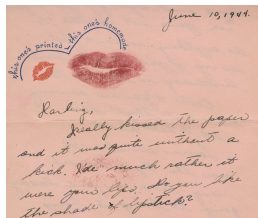 June 10, 1944.
this one's printed this one's homemade
Darling,
I really kissed the paper
and it was quite without a
kick. I'de much rather it
were your lips. Do you like
the shade of lipstick?